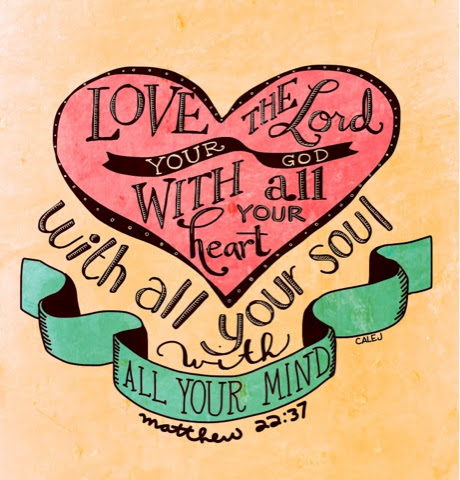 LOVE THE Lord
YOUR GOD
WITH all
YOUR
heart
with all your soul
with
ALL YOUR MIND
CALEJ
matthew 22:37